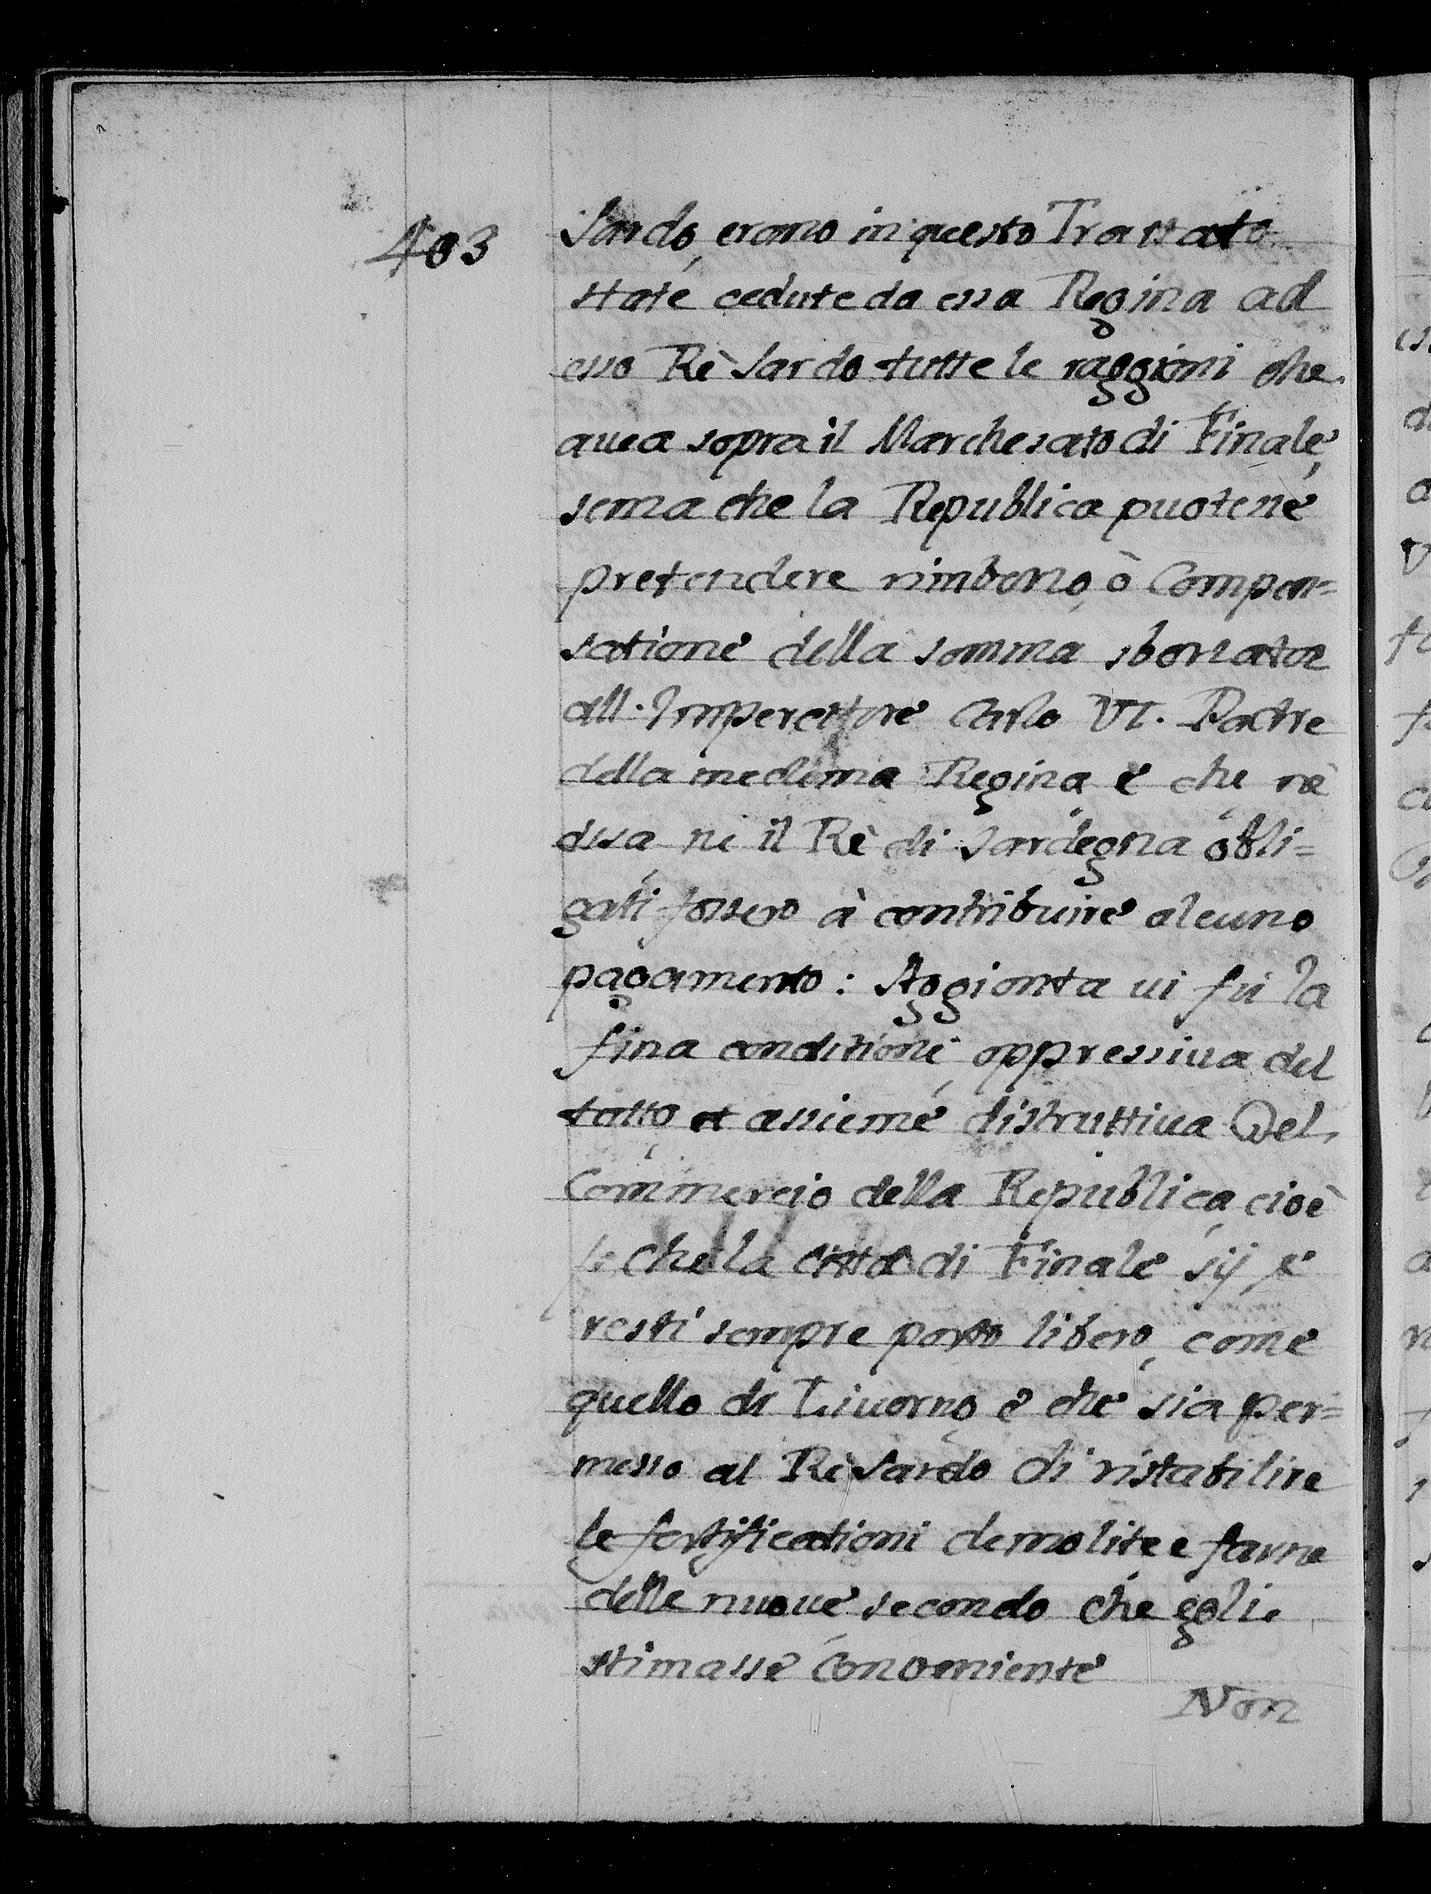 403
Sardo, erano in questo Trattato
state cedute da essa Regina ad
esso Rè Sardo tutte le raggioni che
auea sopra il Marchesato di Finale,
senza che la Republica puotene
pretendere rimborso, ò Compen=
satione della somma sborzatta
all. Imperattore Carlo VI. Padre
della medema Regina e che nè
dssa ni il Rè di Sardegna obli=
gati fossero à contribuire alcuno
pagamento: Aggionta ui fù la
fina conditione oppressiua del
tutto et assieme distruttiua Del
Commercio della Republica, cioè
che la città di Finale sij, e
resti sempre porto libero, come
quello di Liuorno, e che sia per=
messo al Rè Sardo di ristabilire
le fortificationi demolite e farne
delle nuoue, secondo che egli
stimasse Conveniente
Non